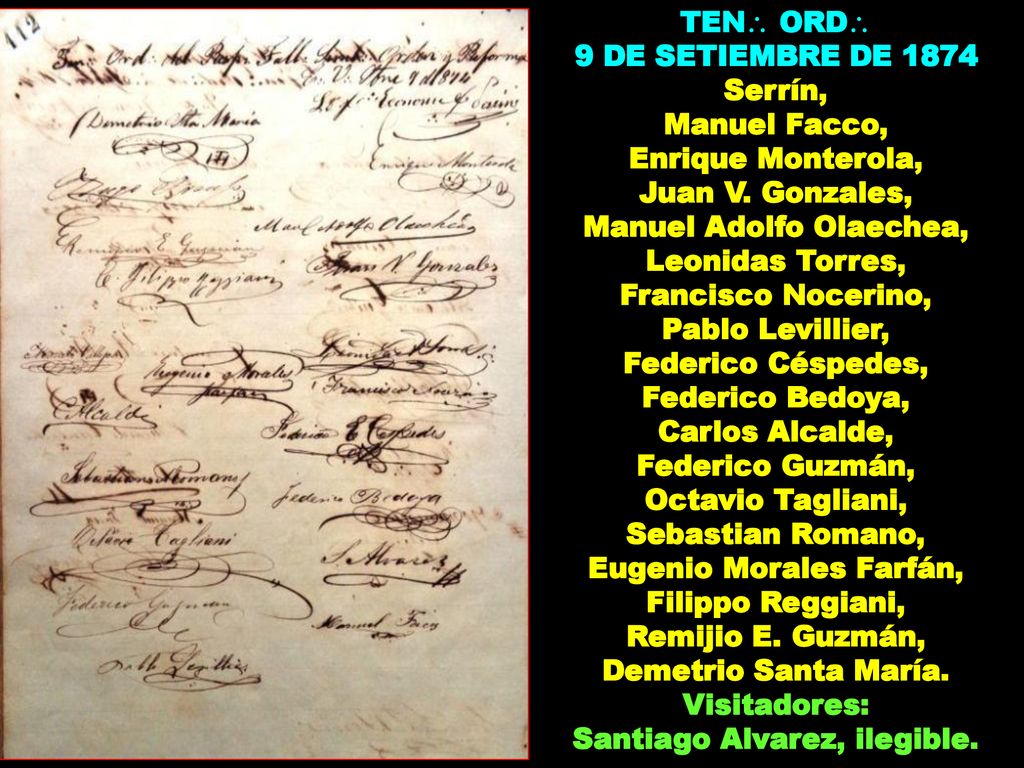 112
Ten∴ Ord∴ del Resp∴ Tall∴ Orden y Reforma
1874
Demetrio Sta María
Enrique Monterola
Man¹ Adolfo Olaechea
Remigio E. Guzmán
Juan V. Gonzales
Filippo Reggiani
Eugenio Morales
Farfan
Francisco
C Alcalde
Federico E Cespedes
Sebastiano Romano
Federico Bedoya
Tagliani
S. Alvarez
Federico Guzman
Manuel Faco
TEN∴ ORD∴
9 DE SETIEMBRE DE 1874
Serrín,
Manuel Facco,
Enrique Monterola,
Juan V. Gonzales,
Manuel Adolfo Olaechea,
Leonidas Torres,
Francisco Nocerino,
Pablo Levillier,
Federico Céspedes,
Federico Bedoya,
Carlos Alcalde,
Federico Guzmán,
Octavio Tagliani,
Sebastian Romano,
Eugenio Morales Farfán,
Filippo Reggiani,
Remijio E. Guzmán,
Demetrio Santa María.
Visitadores:
Santiago Alvarez, ilegible.